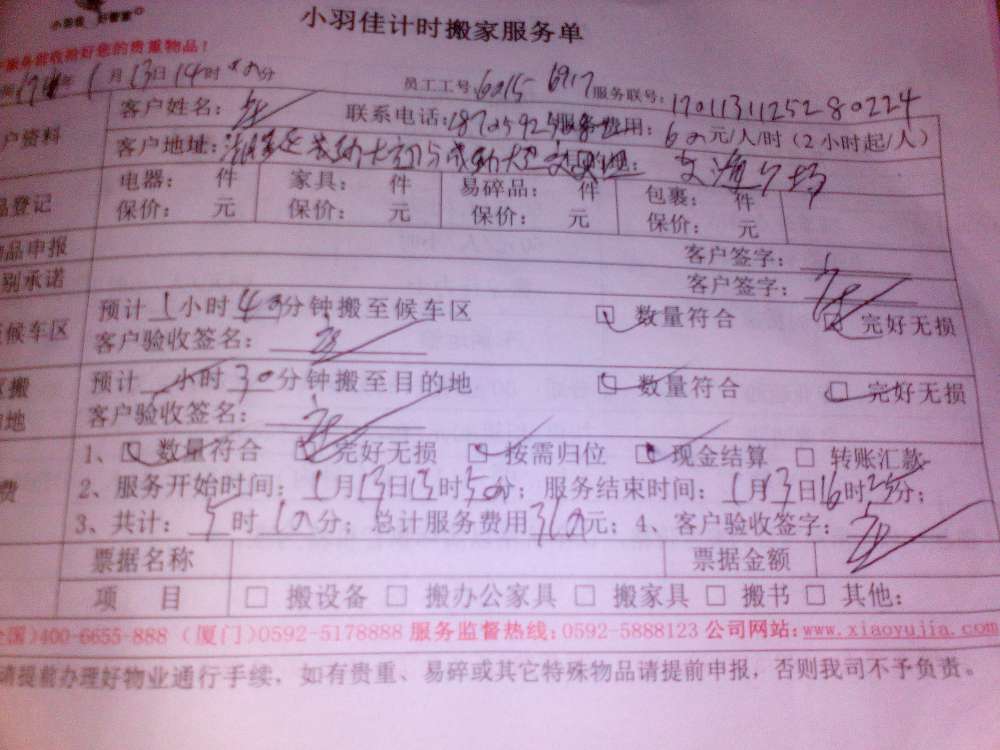 小羽佳 好管家
小羽佳计时搬家服务单
服务前收拾好您的贵重物品！
年1月13日14时00分 员工工号:6015 6917 服务联号:1701131125280224
户资料 客户姓名: 联系电话: 服务费用: 60元/人/时（2小时起/人）
客户地址: 交通广场
品登记 电器: 件 家具: 件 易碎品: 件 包裹: 件
保价: 元 保价: 元 保价: 元 保价: 元
物品申报 客户签字:
别承诺 客户签字:
候车区 预计1小时40分钟搬至候车区 □ 数量符合 □ 完好无损
客户验收签名:
搬 预计 小时30分钟搬至目的地 □ 数量符合 □ 完好无损
地 客户验收签名:
1、□ 数量符合 □ 完好无损 □ 按需归位 □ 现金结算 □ 转账汇款
费 2、服务开始时间: 1月13日13时50分; 服务结束时间: 1月13日16时25分;
3、共计: 5时10分; 总计服务费用310元; 4、客户验收签字:
票据名称 票据金额
项 目 □ 搬设备 □ 搬办公家具 □ 搬家具 □ 搬书 □ 其他:
全国)400-6655-888 (厦门)0592-5178888 服务监督热线:0592-5888123 公司网站:www.xiaoyujia.com
请提前办理好物业通行手续，如有贵重、易碎或其它特殊物品请提前申报，否则我司不予负责。